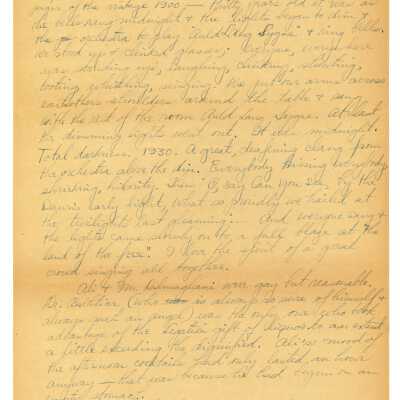 of the vintage 1900 — thirty years old. It was in
the returning midnight & the lights began to dim &
the orchestra to play Auld Lang Sygne & ring bells.
We stood up & clinked glasses; everyone, everywhere
was standing up, laughing, drinking, shouting,
tooting, whistling, singing. We put our arms across
each others shoulders around the table & sang
with the rest of the room Auld Lang Sygne. At last
the dimming lights went out. It was midnight.
Total darkness. 1930. A great, deafening clang from
the orchestra above the din. Everybody kissing everybody,
shrieking, hilarity. Then "O, say can you see, by the
dawn's early light, what so proudly we hailed at
the twilight's last gleaming." And everyone sang &
the lights came slowly on to a full blaze at the
"land of the free." I love the spirit of a great
crowd singing all together.
Ali & Mr. were gay but reasonable.
Dr. (who is always so sure of himself &
always such an angel) was the only one who took
advantage of the gift of liquor to an extent
a little exceeding the dignified. Alice's mood of
the afternoon cocktails had only lasted an hour
anyway — that was because we had on an
empty stomac